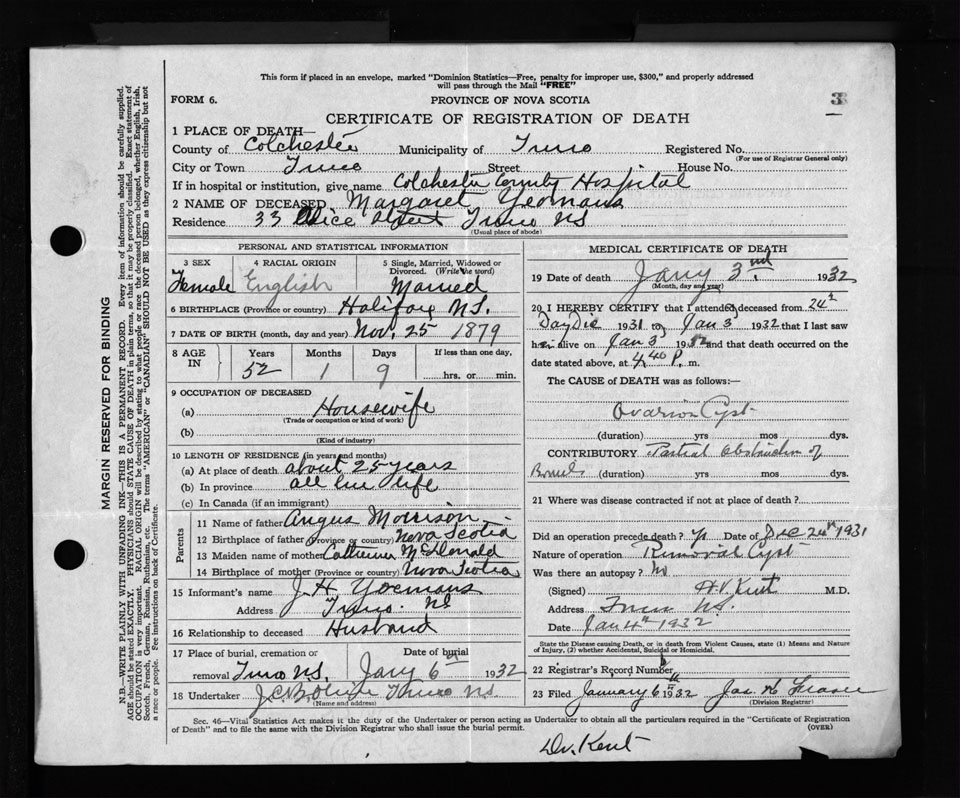 This form if placed in an envelope, marked "Dominion Statistics—Free, penalty for improper use, $300," and properly addressed
will pass through the Mail "FREE"
FORM 6.
PROVINCE OF NOVA SCOTIA
3
CERTIFICATE OF REGISTRATION OF DEATH
1 PLACE OF DEATH—
County of Colchester Municipality of Truro Registered No.
(For use of Registrar General only)
City or Town Truro Street House No.
If in hospital or institution, give name Colchester County Hospital
2 NAME OF DECEASED Margaret Yeomans
Residence 33 Alice Truro NS
(Usual place of abode)
PERSONAL AND STATISTICAL INFORMATION
3 SEX
Female
4 RACIAL ORIGIN
English
5 Single, Married, Widowed or
Divorced. (Write the word)
Married
6 BIRTHPLACE (Province or country) Halifax N.S.
7 DATE OF BIRTH (month, day and year) Nov. 25 1879
8 AGE IN
Years Months Days If less than one day,
52 1 9 hrs. or min.
9 OCCUPATION OF DECEASED
(a) Housewife
(Trade or occupation or kind of work)
(b)
(Kind of industry)
10 LENGTH OF RESIDENCE (in years and months)
(a) At place of death about 25 years
(b) In province all her life
(c) In Canada (if an immigrant)
Parents
11 Name of father Angus Morrison
12 Birthplace of father (Province or country) Nova Scotia
13 Maiden name of mother Catherine McDonald
14 Birthplace of mother (Province or country) Nova Scotia
15 Informant's name J. H. Yoemans
Address Truro. NS
16 Relationship to deceased Husband
17 Place of burial, cremation or Date of burial
removal Truro NS. Jany 6th 1932
18 Undertaker Truro NS
(Name and address)
MEDICAL CERTIFICATE OF DEATH
19 Date of death Jany 3rd. 1932
(Month, day and year)
20 I HEREBY CERTIFY that I attended deceased from 24th
Day Dec 1931 to Jan 3 1932 that I last saw
her alive on Jan 3 1932 and that death occurred on the
date stated above, at 4.40 P. m.
The CAUSE OF DEATH was as follows:
Ovarian Cyst
(duration) yrs mos dys.
CONTRIBUTORY Partial Obstruction of
Bowels (duration) yrs. mos. dys.
21 Where was disease contracted if not at place of death?
Did an operation precede death? Date of Dec 24th 1931
Nature of operation Removal Cyst
Was there an autopsy? No
(Signed) H.V. Kent M.D.
Address Truro NS.
Date Jan 4th 1932
State the Disease causing Death, or in death from Violent Causes, state (1) Means and Nature
of Injury, (2) whether Accidental, Suicidal or Homicidal.
22 Registrar's Record Number 6
23 Filed January 6th 1932 Jas H Fraser
(Division Registrar)
Sec. 46—Vital Statistics Act makes it the duty of the Undertaker or person acting as Undertaker to obtain all the particulars required in the "Certificate of Registration
of Death" and to file the same with the Division Registrar who shall issue the burial permit.
(OVER)
Dr. Kent
MARGIN RESERVED FOR BINDING
N.B.—WRITE PLAINLY WITH UNFADING INK—THIS IS A PERMANENT RECORD. Every item of information should be carefully supplied.
AGE should be stated EXACTLY. PHYSICIANS should STATE CAUSE OF DEATH in plain terms, so that it may be properly classified. Exact statement of
OCCUPATION is very important. RACIAL ORIGIN will be described by stating to what people or race the deceased person belonged, whether English, Irish,
Scotch, French, German, Russian, Ruthenian, etc. The terms "AMERICAN" or "CANADIAN" SHOULD NOT BE USED as they express citizenship but not
a race or people. See instructions on back of Certificate.